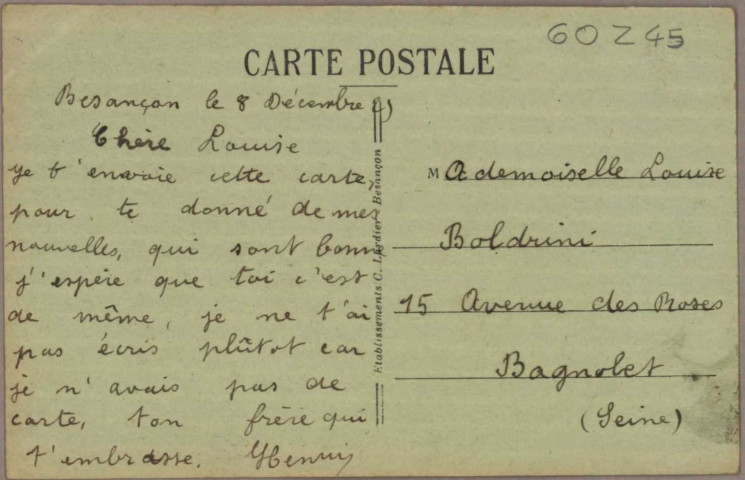 60 Z 45
CARTE POSTALE
Besançon le 8 Décembre
Chère Louise
je t'envoie cette carte
pour te donné de mes
nouvelles, qui sont bonn
j'espère que toi c'est
de même, je ne t'ai
pas écris plûtot car
je n'avais pas de
carte, ton frère qui
t'embrasse. Henri
Etablissements C. Lardier - Besançon
Mademoiselle Louise
Boldrini
15 Avenue des Roses
Bagnolet
(Seine)